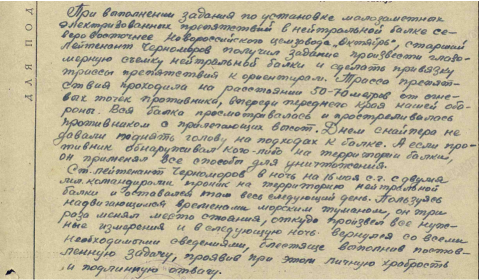 При выполнении задания по установке малозаметных
электризованных препятствий в нейтральной балке се-
веро восточнее Новороссийского цемзавода „Октябрь", старший
Лейтенант Черноморов получил задание произвести глазо-
мерную съемку нейтральной балки и сделать привязку
трассы препятствия к ориентирам. Трасса препят-
ствия проходила на расстоянии 50-70 метров от огне-
вых точек противника, впереди переднего края нашей обо-
роны. Вся балка просматривалась и простреливалась
противником с прилегающих высот. Днем снайпера не
давали поднять голову, на подходах к балке. А если про-
тивник обнаруживал кого-либо на территории балки,
он применял все способы для уничтожения.
Ст. лейтенант Черноморов в ночь на 16 мая с.г. с двумя
мл. командирами, проник на территорию нейтральной
балки и оставался там весь следующий день. Пользуясь
надвигающимся временами морским туманом, он три
раза менял место стояния, откуда произвел все нуж-
ные измерения и в следующую ночь вернулся со всеми
необходимыми сведениями, блестяще выполнив постав-
ленную задачу, проявив при этом личную храбрость
и подлинную отвагу.
ДЛЯ ПОД